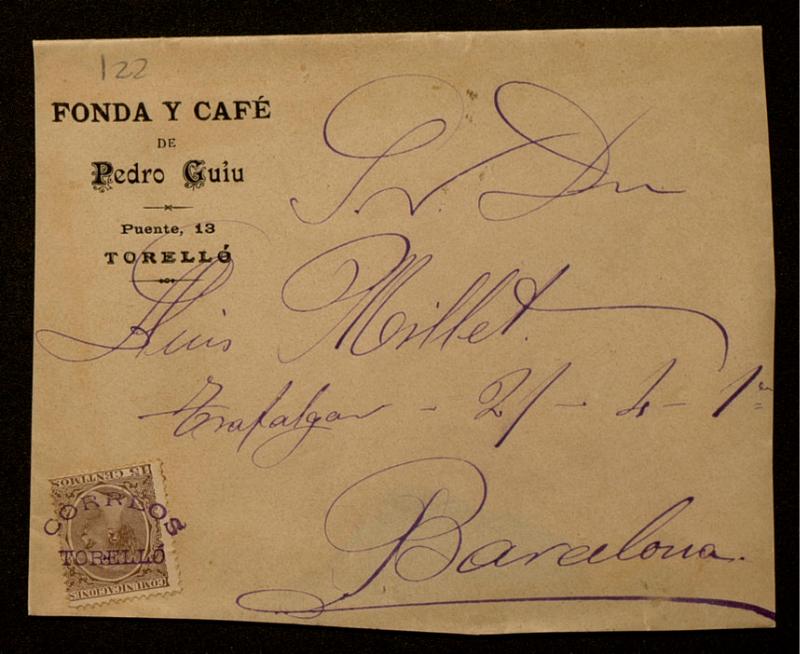 122
FONDA Y CAFÉ
DE
Pedro Guiu
Puente, 13
TORELLÓ
Sr. Dn
Lluis Millet.
Trafalgar - 21 - 4 - 1ª
Barcelona.
15 CENTIMOS
CORREOS
TORELLÓ
COMUNICACIONES